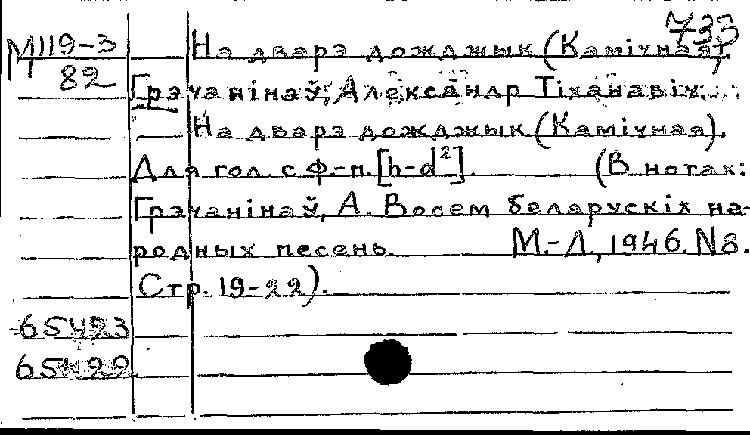 733
М119-3 На дварэ дожджык (Камічная)
82 Грэчанінаў, Александр Тіханавіч.
На дварэ дожджык (Камічная).
Для гол. с ф.-п. [h-d²]. (В нотах:
Грэчанінаў, А. Восем беларускіх на-
родных песень. М.-Л., 1946. N8.
Стр. 19-22).
65423
65422